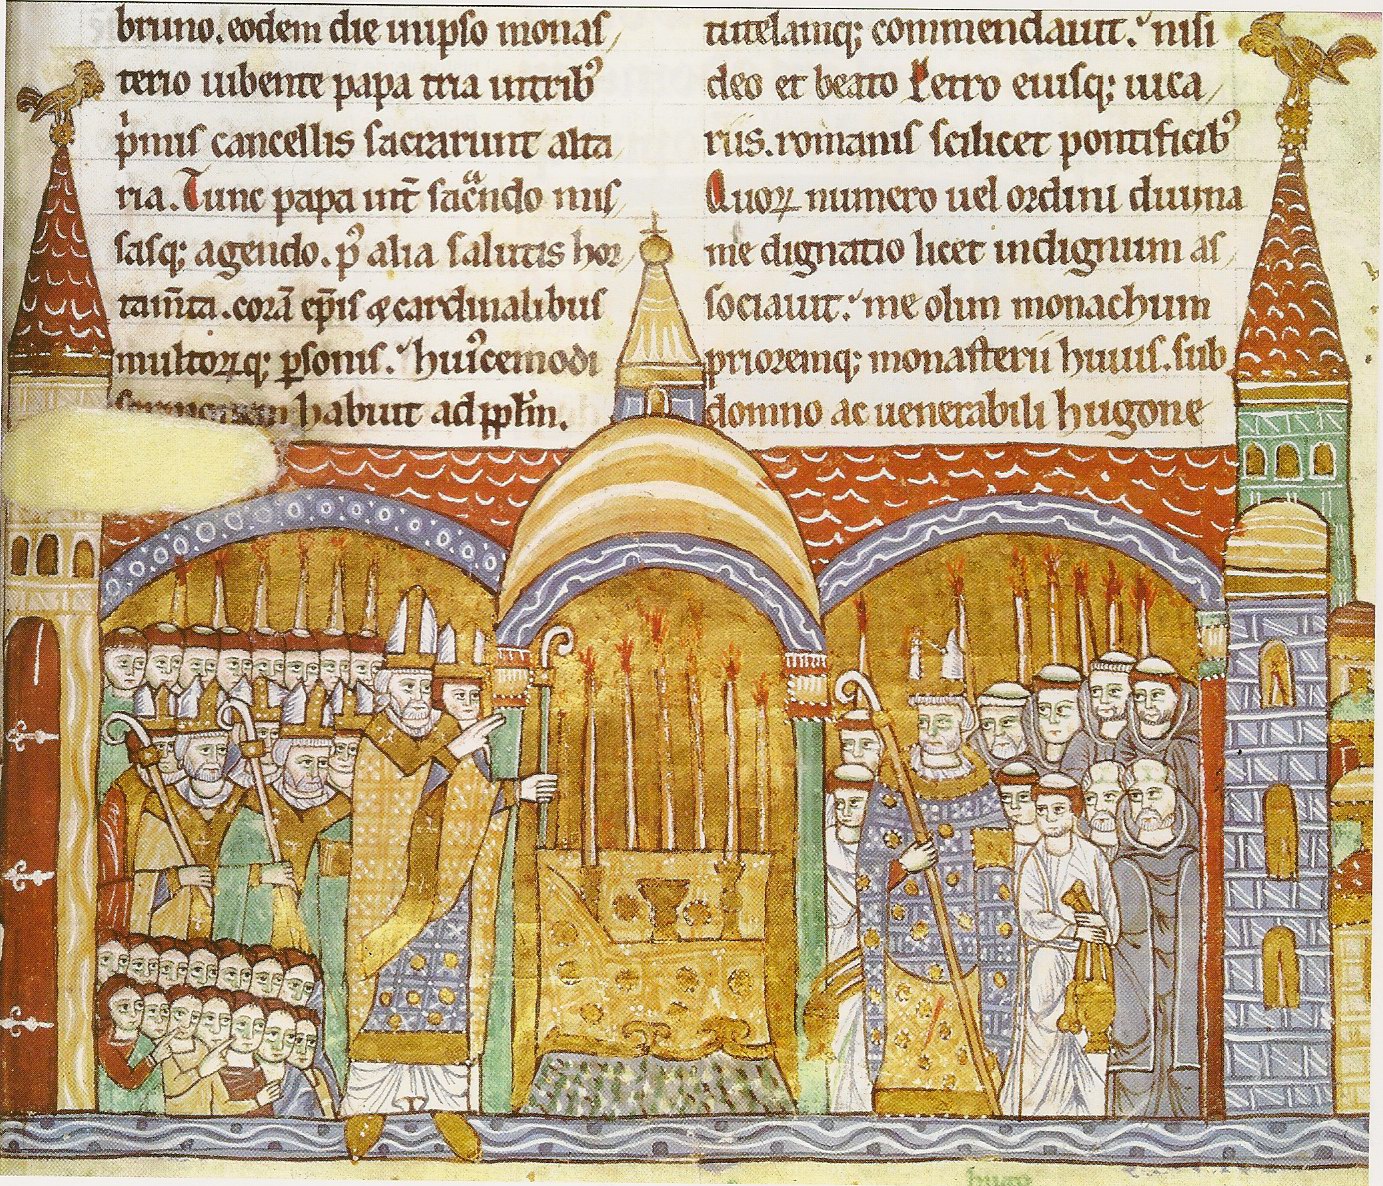 bruno. eodem die in ipso monas
terio iubente papa tria in trib᾽
p̍mis cancellis sacrarunt alta
ria. Tunc papa int̄ sac̍ndo mis
sasq; agendo. p᾽ alia salutis hor
tam̄ta. corā ep̄is & cardinalibus
multorꝝq; ꝑsonis. hui᾽cemodi
habuit ad pp̄lm.
tutelamq; commendauit. nisi
deo et beato Petro eiusq; uica
riis. romanis scilicet pontificib᾽
Quoꝝ numero uel ordini diuina
me dignatio licet indignum as
sociauit. me olim monachum
prioremq; monasterii huius. sub
domno ac uenerabili hugone